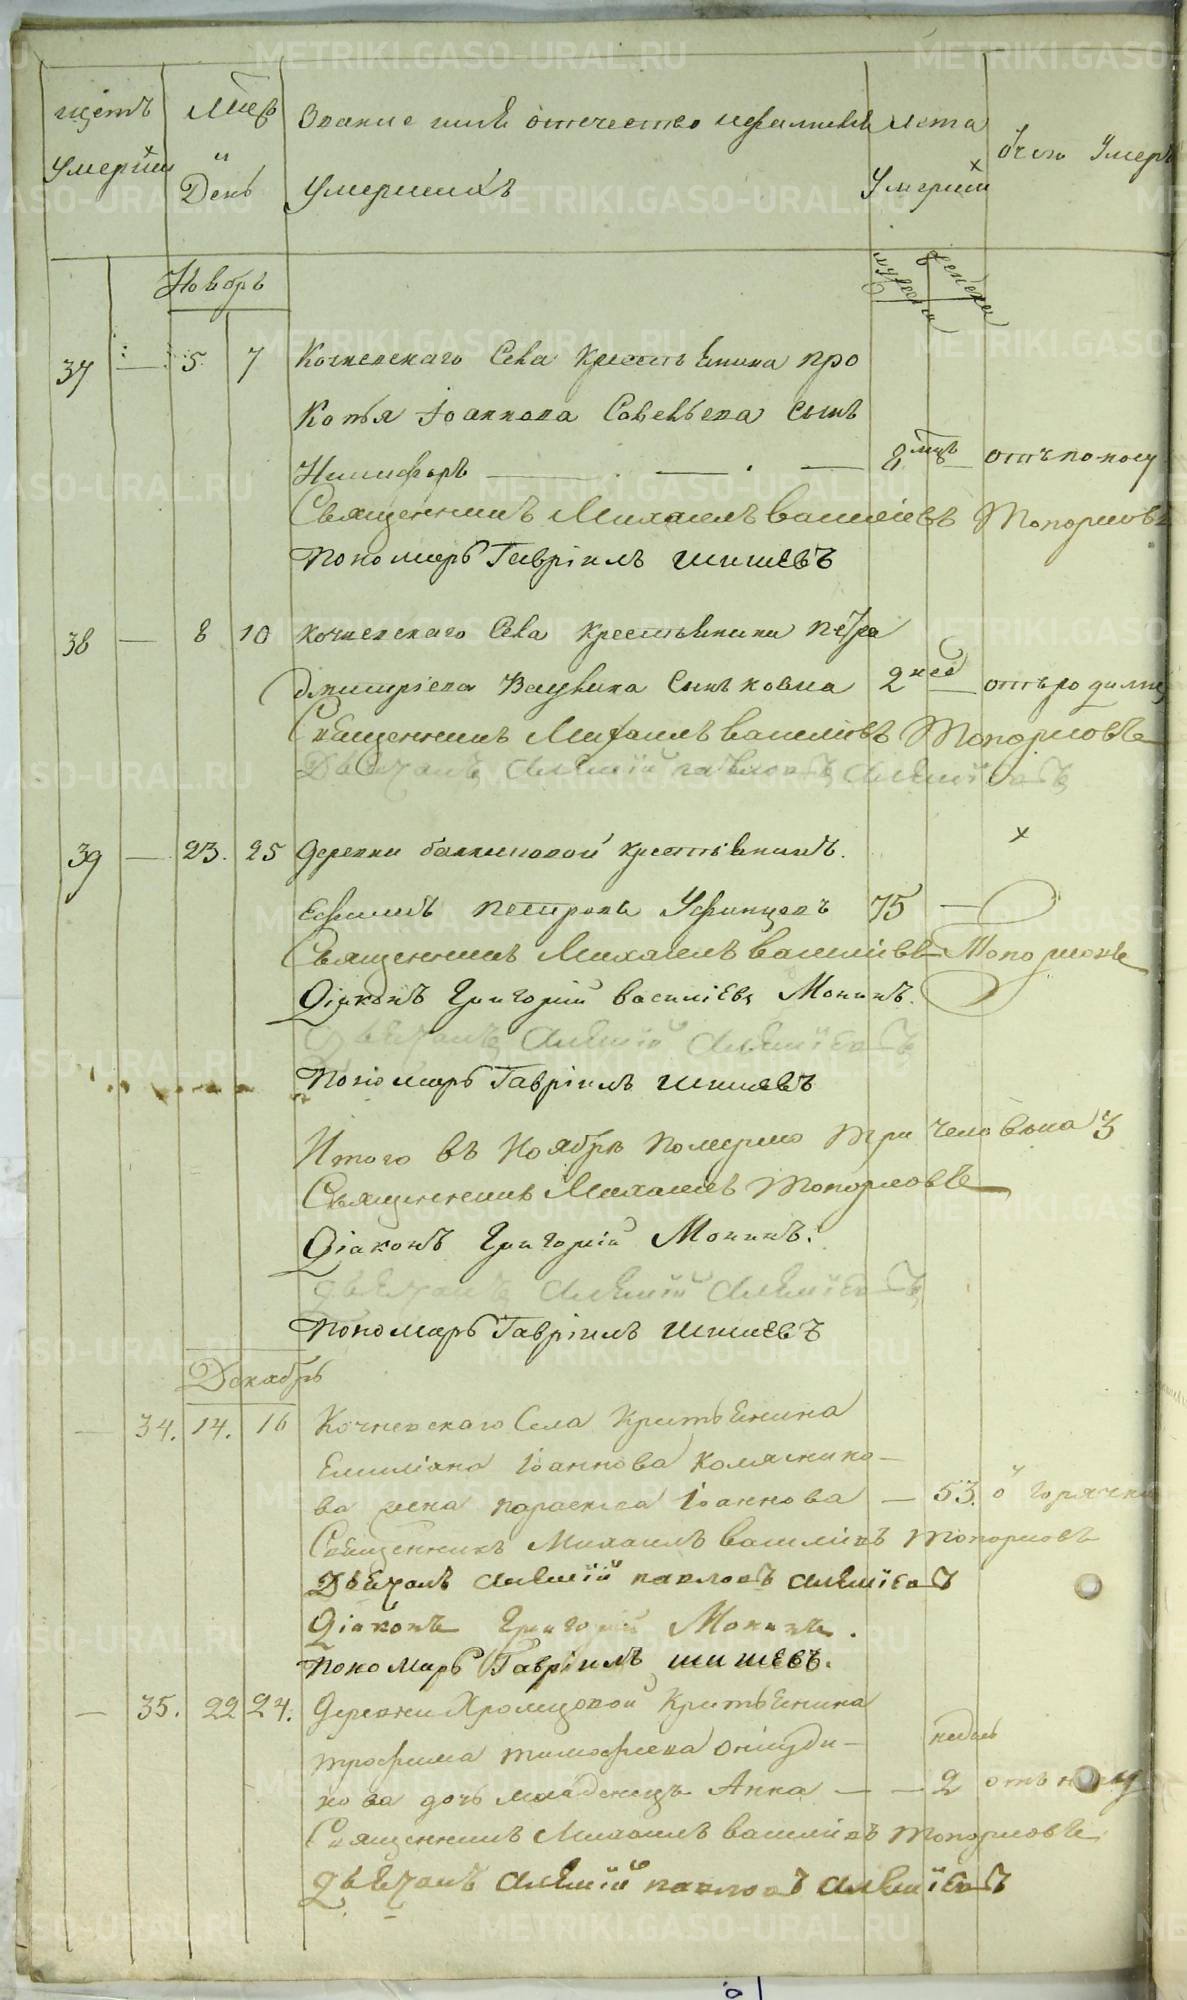 щетъ Мцъ Звание имя отечество и фамилия Лета
Отчего Умеръ
Умерших и День Умершихъ Умерших
Ноябрь
мужеска женска
37 — 5. 7 Кочневскаго Села Крестьянина Про
Копья Іоаннова Савельева сынъ
Никифоръ — 8 мцъ — отъ поносу
Священникъ Михаилъ Васильевъ Топорковъ
Пономарь Гавріилъ Шишевъ
38 — 8 10 Кочневскаго Села Крестьянина Петра
Дмитріева Сынъ 2 нед — отъ родимца
Священникъ Михаилъ Васильевъ Топорковъ
Алексій Павловъ Алексіевъ
39 — 23. 25 Деревни крестьянинъ.
Ефимъ Петровъ Уфинцовъ 75 —
Священникъ Михаилъ Васильевъ Топорковъ
Діаконъ Григорій Василіевъ Монинъ.
Алексій Алексіевъ
Пономарь Гавріилъ Шишевъ
Итого въ Ноябрѣ померло три человѣка 3
Священникъ Михаилъ Топорковъ
Діаконъ Григорій Монинъ.
Алексій Алексіевъ
Пономарь Гавріилъ Шишевъ
Декабрь
— 34. 14. 16 Кочневскаго Села Крестьянина
Емиліана Іоаннова Коляснико-
ва жена Параскева Іоаннова — 53. Горячки
Священникъ Михаилъ Васильевъ Топорковъ
Алексій Павловъ Алексіевъ
Діаконъ Григорій Монинъ.
Пономарь Гавріилъ Шишевъ.
— 35. 22 24. Деревни Хромцовой Крестьянина
Трофима Тимофеева Онисуди-
нова дочь младенецъ Анна — — 2 недель отъ
Священникъ Михаилъ Васильевъ Топорковъ
Алексій Павловъ Алексіевъ
METRIKI.GASO-URAL.RU